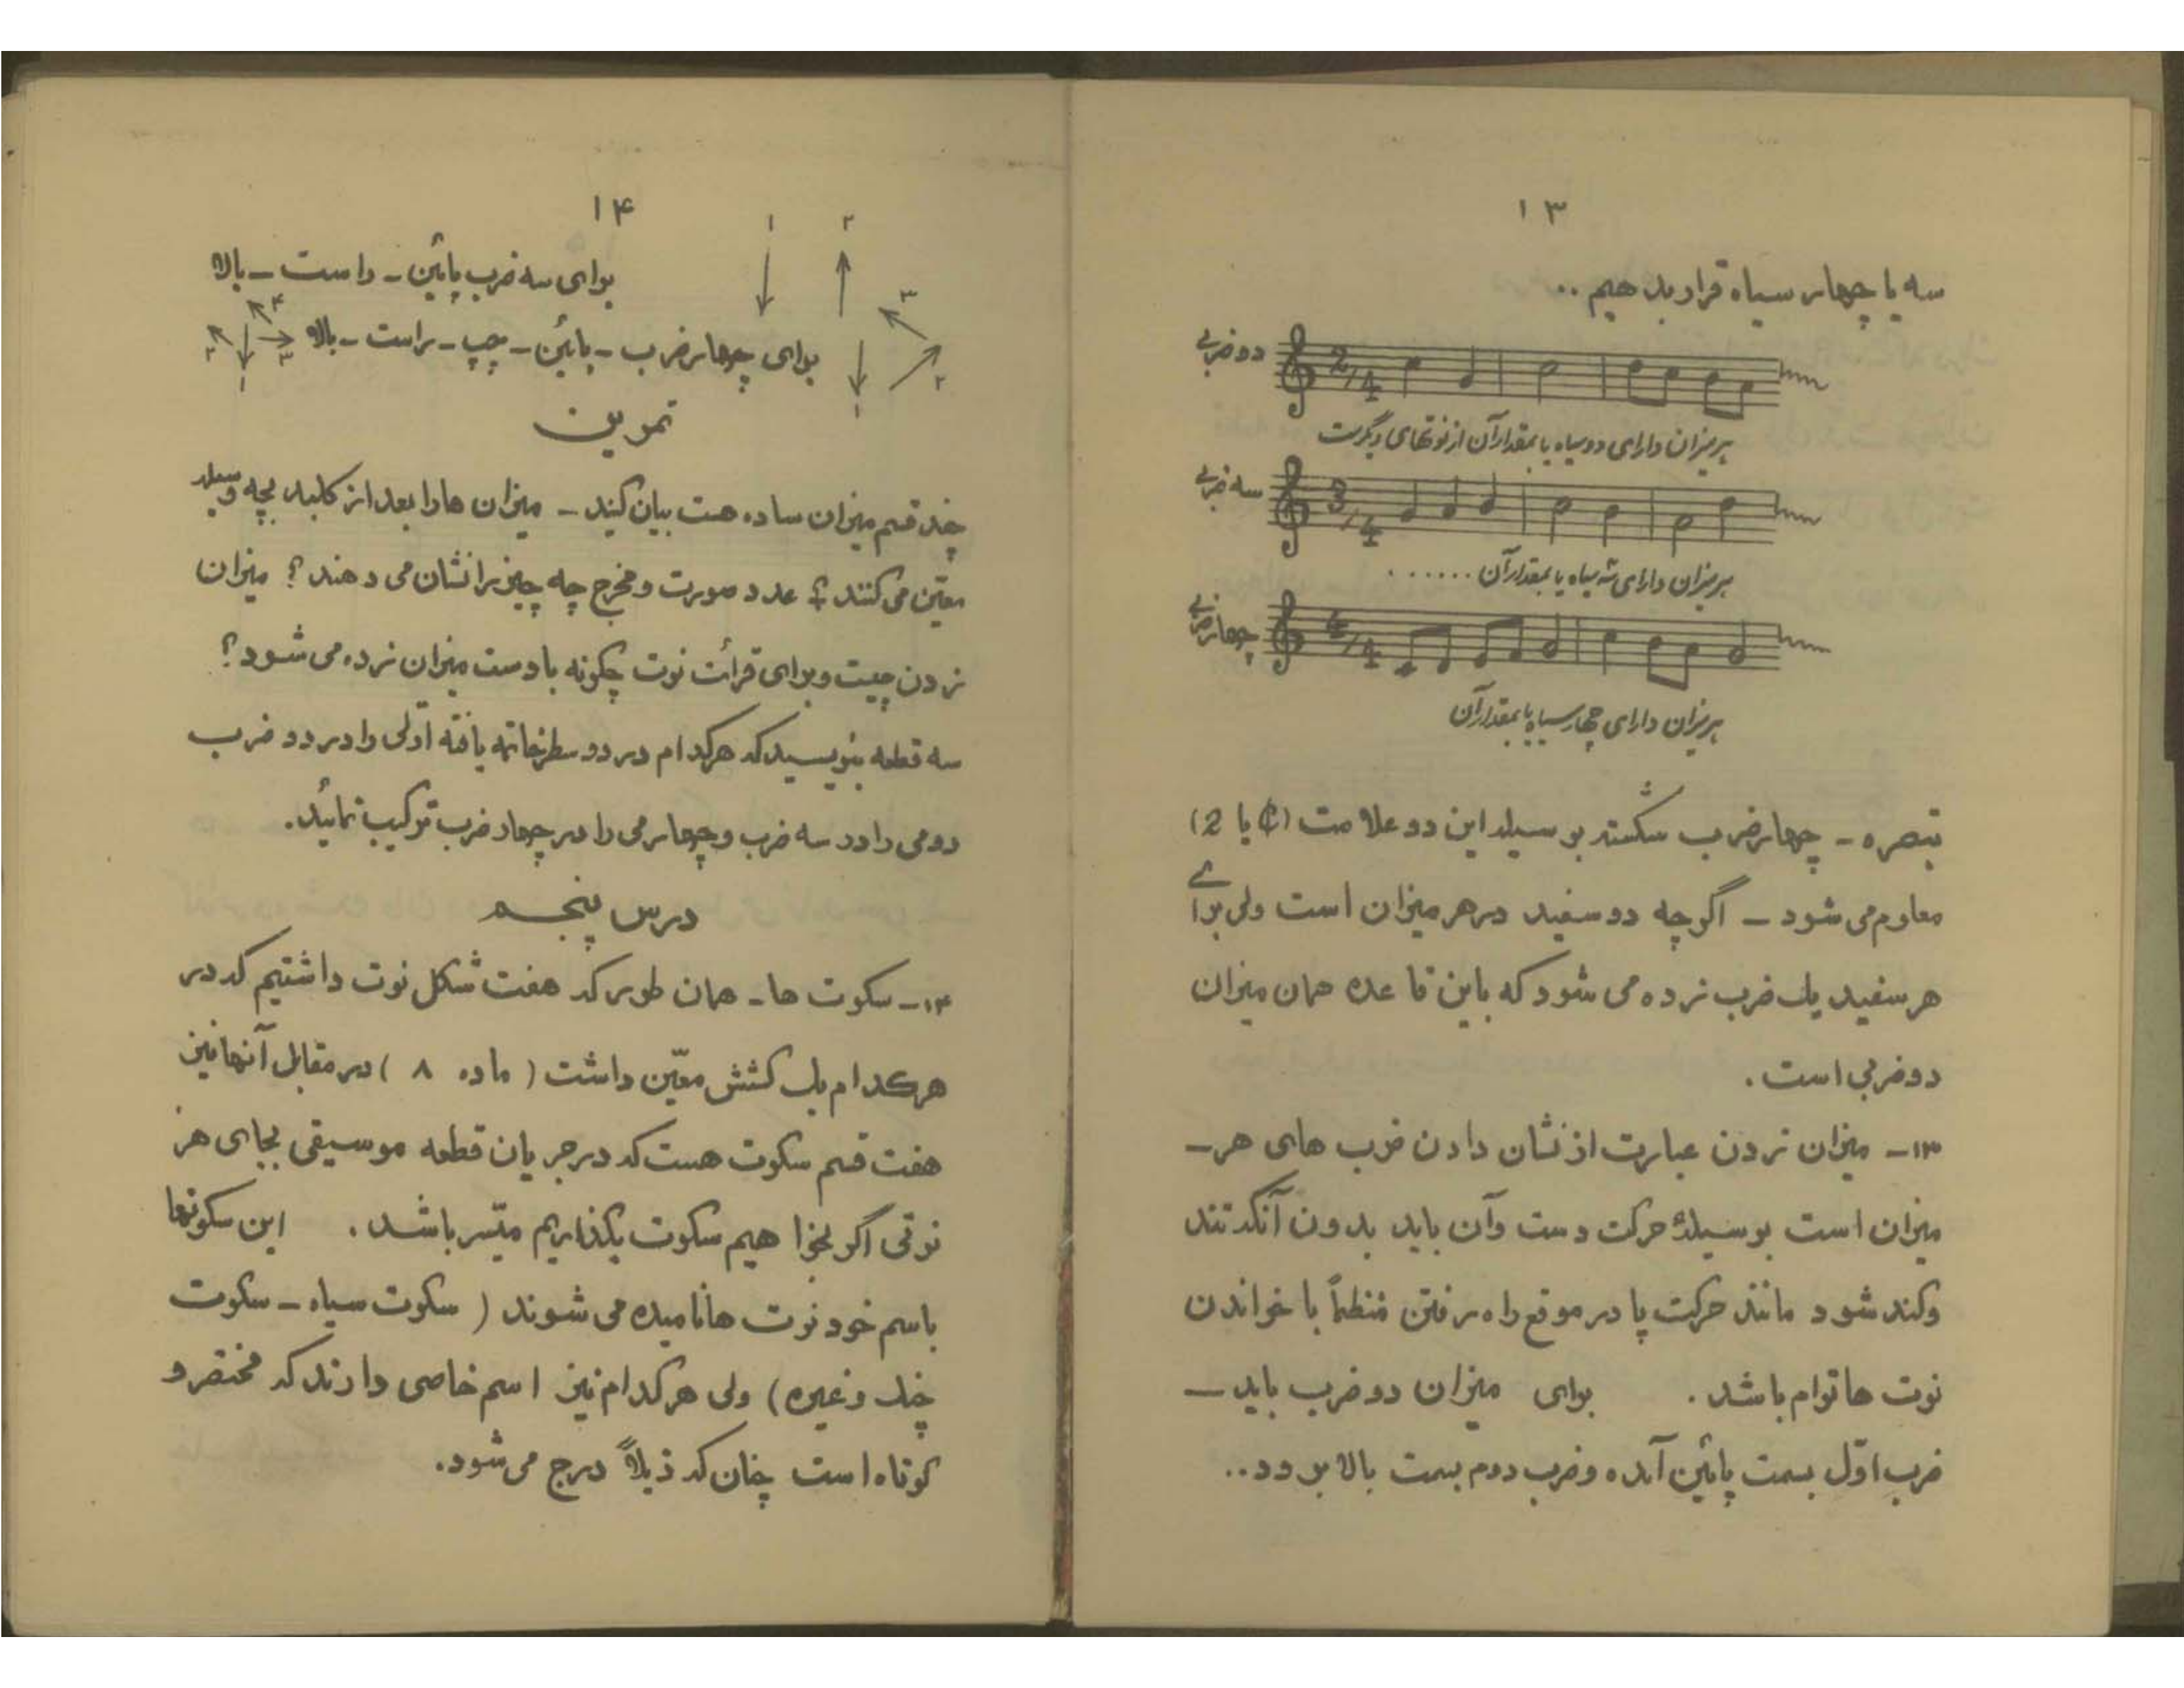 ۱۳
سه یا چهار سیاه قرار بدهیم ..
دو ضربی
2/4
هر میزان دارای دو سیاه یا بمقدار آن از نوتهای دیگر است
سه ضربی
3/4
هر میزان دارای سه سیاه یا بمقدار آن ......
چهار ضربی
4/4
هر میزان دارای چهار سیاه یا بمقدار آن
تبصره - چهار ضرب شکسته بوسیله این دو علامت (¢ یا 2)
معلوم می شود - اگر چه دو سفید در هر میزان است ولی برای
هر سفید یک ضرب زده می شود که باین قاعده همان میزان
دو ضربی است .
۱۳- میزان زدن عبارت از نشان دادن ضرب های هر -
میزان است بوسیلهٔ حرکت دست و آن باید بدون آنکه تند
و کند شود مانند حرکت پا در موقع راه رفتن منظماً با خواندن
نوت ها توام باشد . برای میزان دو ضرب باید -
ضرب اوّل بسمت پائین آمده و ضرب دوم بسمت بالا برود ..
۱۴
۱ ۲
برای سه ضرب پائین - راست - بالا
۱ ۲ ۳
برای چهار ضرب - پائین - چپ - راست - بالا
۱ ۲ ۳ ۴
تمرین
چند قسم میزان ساده هست بیان کنید - میزان ها را بعد از کلید بچه وسیله
معیّن می کنند ؟ عدد صورت و مخرج چه چیز را نشان می دهند ؟ میزان
زدن چیست و برای قرائت نوت چگونه با دست میزان زده می شود ؟
سه قطعه بنویسید که هرکدام در دو سطر خاتمه یافته اوّلی را در دو ضرب
دومی را در سه ضرب و چهارمی را در چهار ضرب ترکیب نمائید.
درس پنجم
۱۴- سکوت ها - همان طور که هفت شکل نوت داشتیم که در
هرکدام یک کشش معیّن داشت ( ماده ۸ ) در مقابل آنها نیز
هفت قسم سکوت هست که در جریان قطعه موسیقی بجای هر
نوتی اگر بخواهیم سکوت بگذاریم میّسر باشد . این سکوتها
باسم خود نوت ها نامیده می شوند ( سکوت سیاه - سکوت
چنگ و غیره ) ولی هرکدام نیز اسم خاصی دارند که مختصر و
کوتاه است چنان که ذیلاً درج می شود.